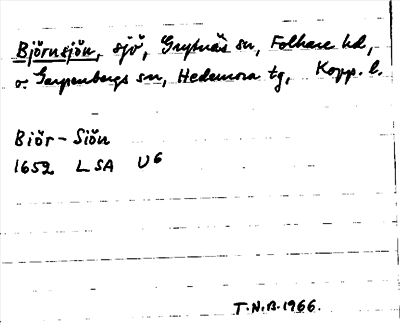 Björnsjön, sjö, Grytnäs sn, Folkare hd,
o. Garpenbergs sn, Hedemora tg, Kopp. l.
Biör-Siön
1652 LSA U6
T.N.B. 1966.